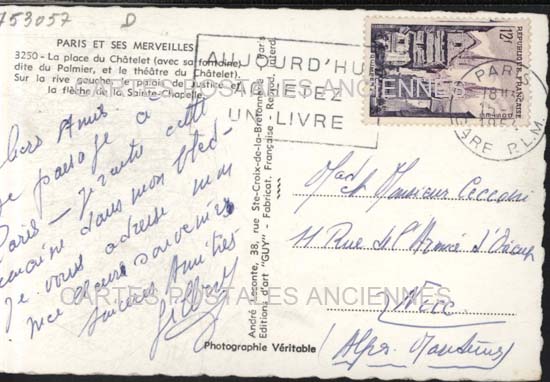 753057 D
PARIS ET SES MERVEILLES
3250 - La place du Châtelet (avec sa fontaine,
dite du Palmier, et le théâtre du Châtelet).
Sur la rive gauche, le palais de Justice et
la flèche de la Sainte-Chapelle.
Chers Amis
De passage à
Paris - je
semaine dans mon
Je vous adresse mon
souvenir
Sincères Amitiés
Gilbert
André Leconte, 38, rue Ste-Croix-de-la-Bretonnerie, Paris
Editions d'art "GUY" - Fabricat. Française - Reprod. Interd.
Photographie Véritable
AUJOURD'HUI
ACHETEZ
UN LIVRE
12F
REPUBLIQUE FRANÇAISE
QUIMPER
POSTES
PARIS
18H
GARE P.L.M.
Monsieur
11 Rue de l'Armée d'Orient
Nice
(Alpes Maritimes)
CARTES POSTALES ANCIENNES
CARTES POSTALES ANCIENNES